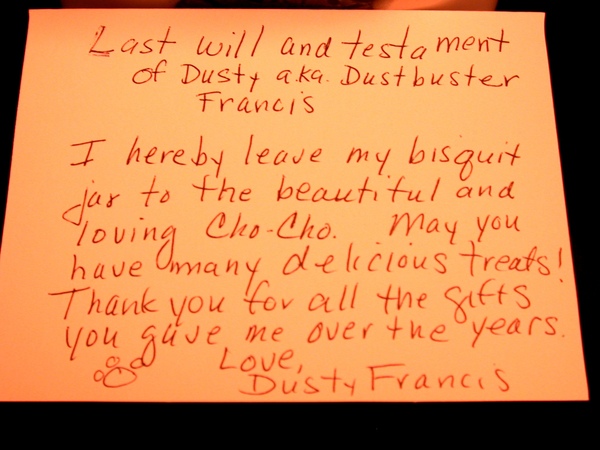 Last will and testament
of Dusty a.k.a. Dustbuster
Francis
I hereby leave my bisquit
jar to the beautiful and
loving Cho-Cho. May you
have many delicious treats!
Thank you for all the gifts
you gave me over the years.
Love,
Dusty Francis